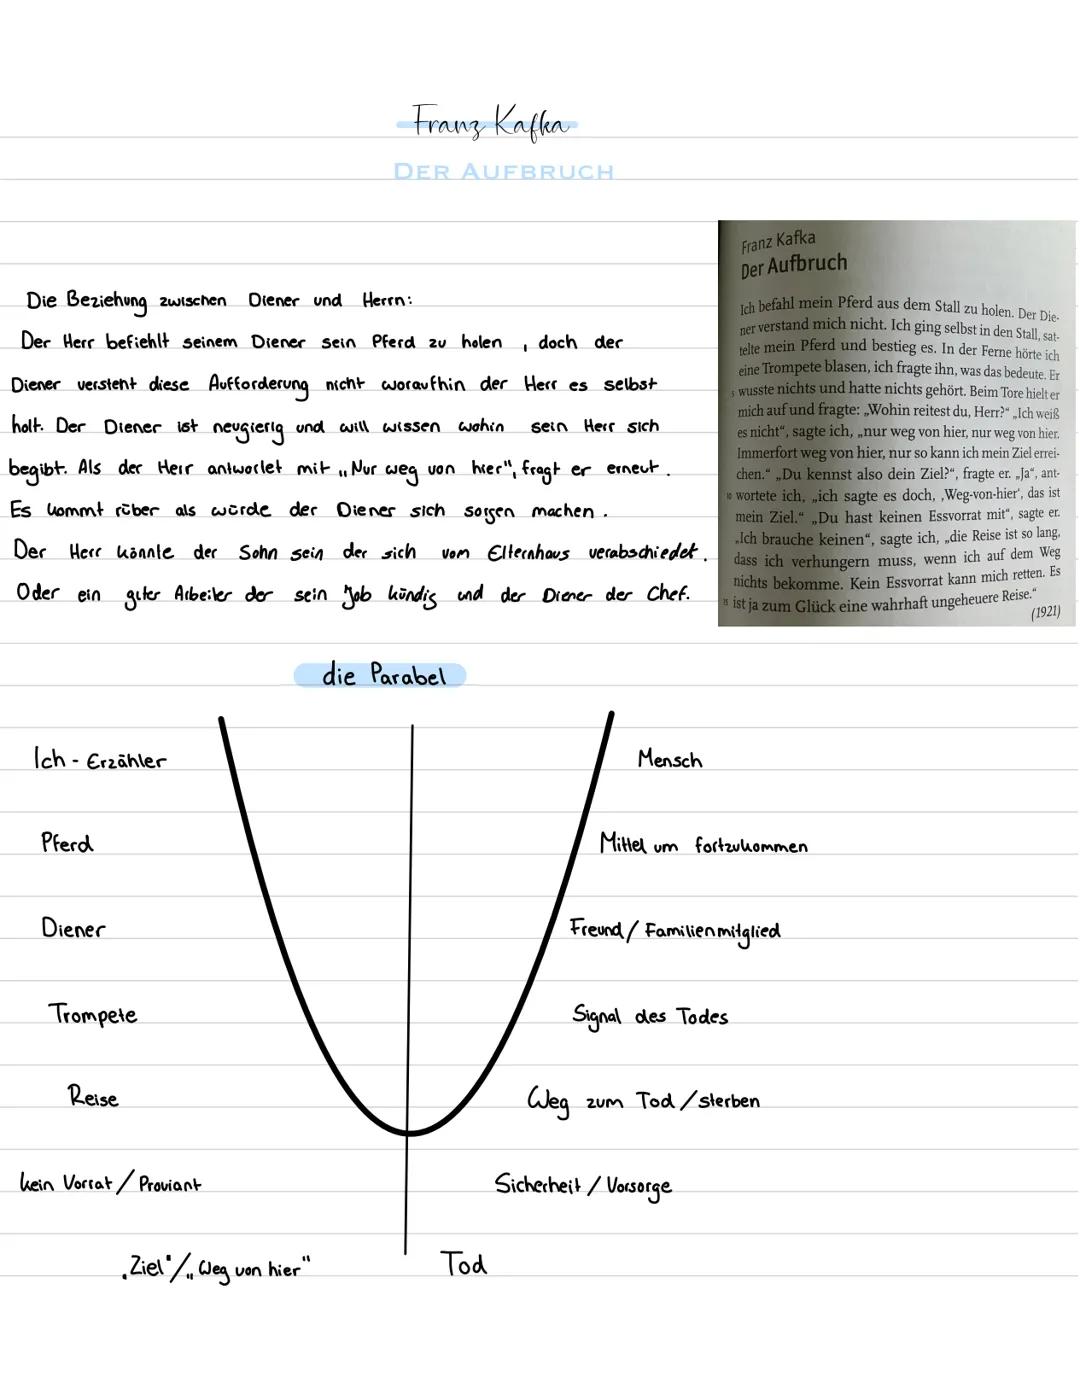 Franz Kafka
DER AUFBRUCH
Die Beziehung zwischen Diener und Herrn:
Der Herr befiehlt seinem Diener sein Pferd zu holen , doch der
Diener versteht diese Aufforderung nicht woraufhin der Herr es selbst
holt. Der Diener ist neugierig und will wissen wohin sein Herr sich
begibt. Als der Herr antwortet mit „Nur weg von hier", fragt er erneut .
Es kommt rüber als würde der Diener sich sorgen machen .
Der Herr könnte der Sohn sein der sich vom Elternhaus verabschiedet .
Oder ein guter Arbeiter der sein Job kündig und der Diener der Chef.
Franz Kafka
Der Aufbruch
Ich befahl mein Pferd aus dem Stall zu holen. Der Die-
ner verstand mich nicht. Ich ging selbst in den Stall, sat-
telte mein Pferd und bestieg es. In der Ferne hörte ich
eine Trompete blasen, ich fragte ihn, was das bedeute. Er
5 wusste nichts und hatte nichts gehört. Beim Tore hielt er
mich auf und fragte: „Wohin reitest du, Herr?“ „Ich weiß
es nicht“, sagte ich, „nur weg von hier, nur weg von hier.
Immerfort weg von hier, nur so kann ich mein Ziel errei-
chen.“ „Du kennst also dein Ziel?“, fragte er. „Ja“, ant-
10 wortete ich, „ich sagte es doch, ‚Weg-von-hier‘, das ist
mein Ziel.“ „Du hast keinen Essvorrat mit“, sagte er.
„Ich brauche keinen“, sagte ich, „die Reise ist so lang,
dass ich verhungern muss, wenn ich auf dem Weg
nichts bekomme. Kein Essvorrat kann mich retten. Es
15 ist ja zum Glück eine wahrhaft ungeheuere Reise.“
(1921)
die Parabel
Ich - Erzähler Mensch
Pferd Mittel um fortzukommen
Diener Freund / Familienmitglied
Trompete Signal des Todes
Reise Weg zum Tod / sterben
kein Vorrat / Proviant Sicherheit / Vorsorge
„Ziel" / „Weg von hier" Tod